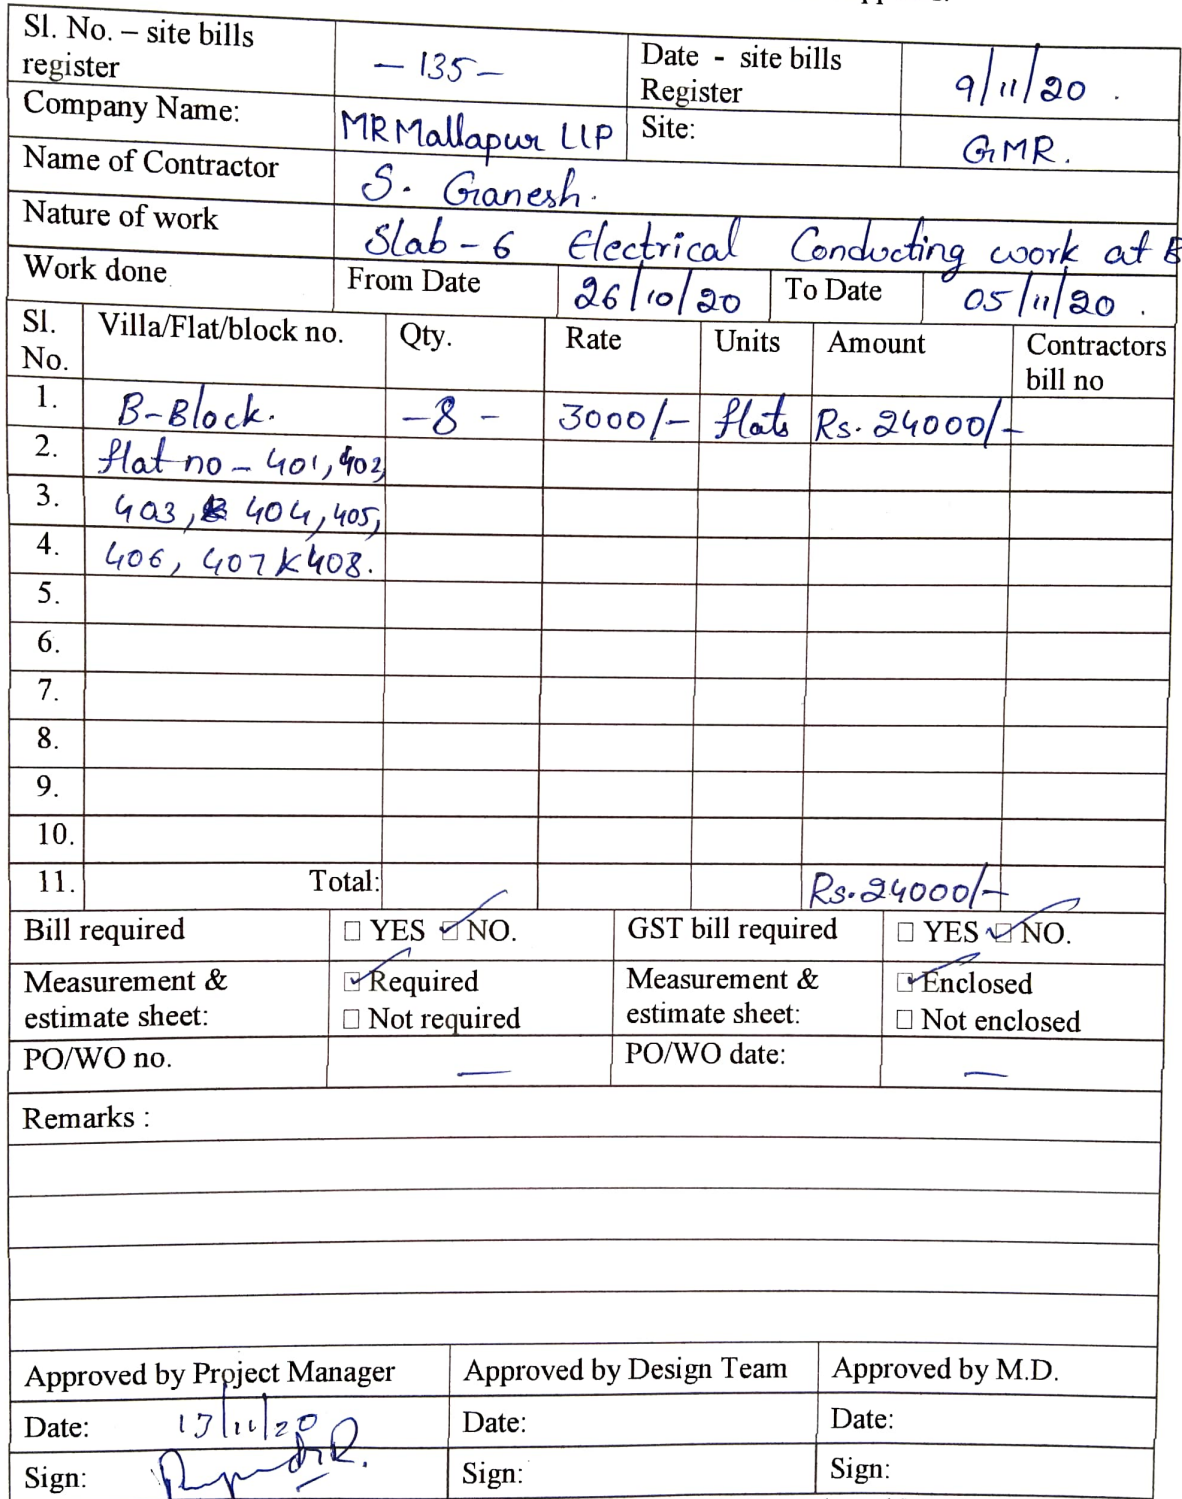 Sl. No. – site bills register – 135 – Date - site bills Register 9/11/20 .
Company Name: MR Mallapur LLP Site: GMR.
Name of Contractor S. Ganesh.
Nature of work Slab - 6 Electrical Conducting work at B
Work done From Date 26/10/20 To Date 05/11/20 .
Sl. No. Villa/Flat/block no. Qty. Rate Units Amount Contractors bill no
1. B-Block. - 8 - 3000/- flats Rs. 24000/-
2. flat no - 401, 402,
3. 403, 404, 405,
4. 406, 407 & 408.
5.
6.
7.
8.
9.
10.
11. Total: Rs. 24000/-
Bill required □ YES ☑ NO. GST bill required □ YES ☑ NO.
Measurement & estimate sheet: ☑ Required □ Not required Measurement & estimate sheet: ☑ Enclosed □ Not enclosed
PO/WO no. — PO/WO date: —
Remarks :
Approved by Project Manager Approved by Design Team Approved by M.D.
Date: 17/11/20 Date: Date:
Sign: Sign: Sign: